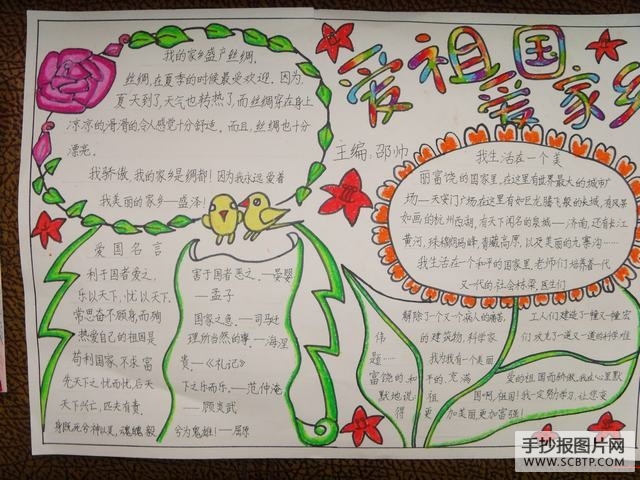 我的家乡盛产丝绸,
丝绸,在夏季的时候最受欢迎。因为,
夏天到了,天气也转热了,而丝绸穿在身上
凉凉的滑滑的令人感觉十分舒适。而且,丝绸也十分
漂亮。
我骄傲,我的家乡是绸都!因为我永远爱着
我美丽的家乡—盛泽!
爱祖国
爱家乡
主编:邵帅
我生活在一个美
丽富饶的国家里,在这里有世界最大的城市广
场—天安门广场,在这里有如巨龙腾飞般的长城,有风景
如画的杭州西湖,有天下闻名的泉城——济南,还有长江
黄河,珠穆朗玛峰,青藏高原,以及美丽的九寨沟……
我生活在一个和平的国家里,老师们培养着一代
又一代的社会栋梁,医生们
爱国名言
利于国者爱之,
乐以天下,忧以天下,
常思奋不顾身,而殉
热爱自己的祖国是
苟利国家,不求富
先天下之忧而忧,后天
天下兴亡,匹夫有责.
身既死兮神以灵,魂魄毅
害于国者恶之。—晏婴
—孟子
国家之急。—司马迁
理所当然的事。—海涅
贵。—《礼记》
下之乐而乐。—范仲淹
——顾炎武
兮为鬼雄!——屈原
解除了一个又一个病人的痛苦,
伟
题……
富饶的,和
默地说:
得
工人们建造了一幢又一幢宏
的建筑物,科学家
们攻克了一道又一道的科学难
我为我有一个美丽
平的,充满
祖
更
爱的祖国而骄傲,我在心里默
国啊,祖国!我一定努力学习,让您变
加美丽,更加富强!
手抄报图片网
WWW.SCBTP.COM